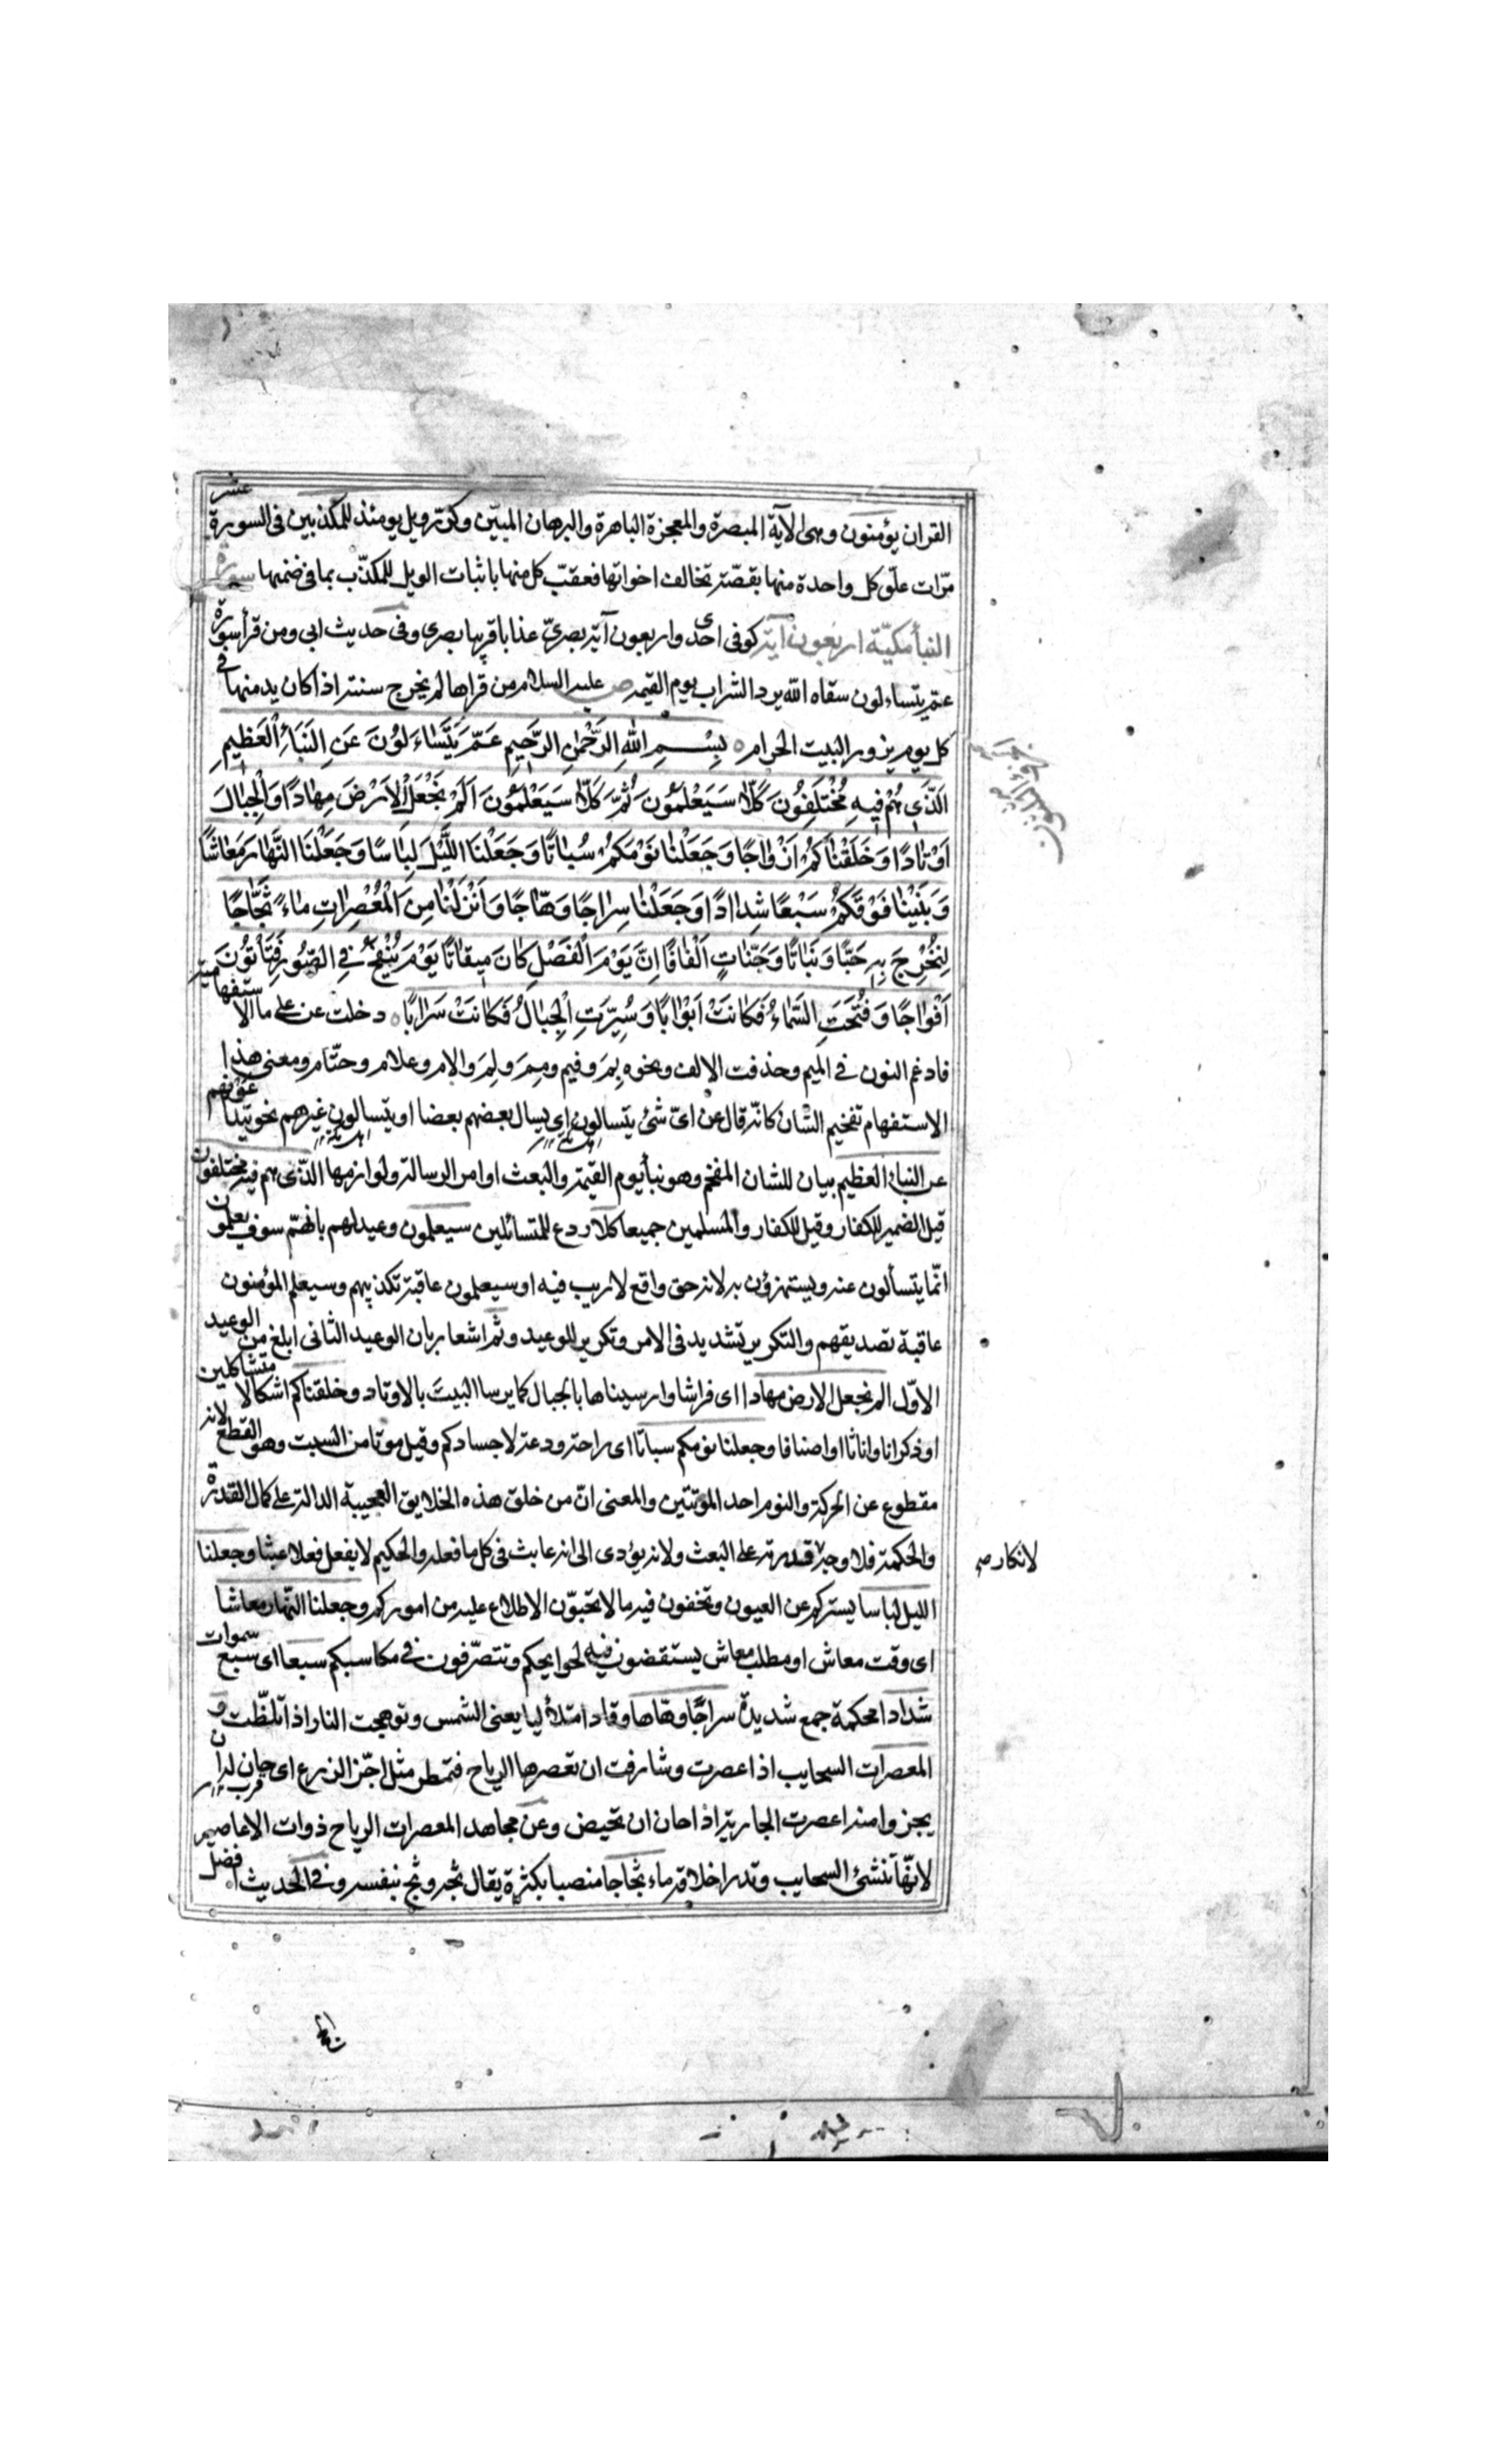 القران يؤمنون وهى الآية المبصرة والمعجزة الباهرة والبرهان المبيّن وكرّر ويل يومئذ للمكذبين فى السورة عشر
مرّات علّق كل واحدة منها بقصّة تخالف اخواتها فعقّب كل منها باثبات الويل للمكذّب بما فى ضمنها سورة
النبأ مكيّة اربعون آية كوفى احدى واربعون آية بصرىّ عذابا قريبا بصرى وفى حديث ابى ومن قرأ سورة
عمّ يتساءلون سقاه الله برد الشراب يوم القيمة ص عليه السلام من قراها لم يخرج سنته اذا كان يدمنها فى
كل يوم يزور البيت الحرام بِسْمِ اللهِ الرَّحْمٰنِ الرَّحِيمِ عَمَّ يَتَسٰاءَلُونَ عَنِ النَّبَأِ الْعَظِيمِ
الَّذِي هُمْ فِيهِ مُخْتَلِفُونَ كَلّٰا سَيَعْلَمُونَ ثُمَّ كَلّٰا سَيَعْلَمُونَ اَلَمْ نَجْعَلِ الْاَرْضَ مِهٰادًا وَالْجِبٰالَ
اَوْتٰادًا وَخَلَقْنٰاكُمْ اَزْوٰاجًا وَجَعَلْنٰا نَوْمَكُمْ سُبٰاتًا وَجَعَلْنَا اللَّيْلَ لِبٰاسًا وَجَعَلْنَا النَّهٰارَ مَعٰاشًا
وَبَنَيْنٰا فَوْقَكُمْ سَبْعًا شِدٰادًا وَجَعَلْنٰا سِرٰاجًا وَهّٰاجًا وَاَنْزَلْنٰا مِنَ الْمُعْصِرٰاتِ مٰاءً ثَجّٰاجًا
لِنُخْرِجَ بِهِ حَبًّا وَنَبٰاتًا وَجَنّٰاتٍ اَلْفٰافًا اِنَّ يَوْمَ الْفَصْلِ كٰانَ مِيقٰاتًا يَوْمَ يُنْفَخُ فِي الصُّورِ فَتَأْتُونَ
اَفْوٰاجًا وَفُتِحَتِ السَّمٰاءُ فَكٰانَتْ اَبْوٰابًا وَسُيِّرَتِ الْجِبٰالُ فَكٰانَتْ سَرٰابًا دخلت عن على ما الاستفهامية
فادغم النون فى الميم وحذفت الالف ونحوه بِمَ وفيم ومِمَ ولِمَ والام وعلام وحتّام ومعنى هذا
الاستفهام تفخيم الشان كانّه قال عن اىّ شئ يتسالون اى يسال بعضهم بعضا او يتسالون غيرهم نحو
عن النبأ العظيم بيان للشان المفخم وهو نبأ يوم القيمة والبعث او امر الرسالة ولوازمها الّذى هم فيه مختلفون
قيل الضمير للكفار وقيل للكفار والمسلمين جميعا كلا ردع للمتسائلين سيعلمون وعيد لهم بانّهم سوف يعلمون
انّ ما يتسألون عنه ويستهزؤن به لانه حق واقع لا ريب فيه او سيعلمون عاقبة تكذيبهم وسيعلم المؤمنون
عاقبة تصديقهم والتكرير تشديد فى الامر وتكرير للوعيد وثمّ اشعار بان الوعيد الثانى ابلغ من الوعيد
الاوّل الم نجعل الارض مهادا اى فراشا وارسيناها بالجبال كما يرسا البيت بالاوتاد وخلقناكم اشكالا متشاكلين
او ذكرانا واناثا او اصنافا وجعلنا نومكم سباتا اى راحة ودعة لاجسادكم وقيل موتا من السبت وهو القطع لانه
مقطوع عن الحركة والنوم احد الموتتين والمعنى انّ من خلق هذه الخلايق العجيبة الدالة على كمال القدرة
والحكمة فلا وجه قدرته على البعث ولانه يؤدى الى انه عابث فى كل ما فعله والحكيم لا يفعل فعلا عبثا وجعلنا
لانكار
الليل لباسا يستركم عن العيون وتخفون فيه ما لا تحبّون الاطلاع عليه من اموركم وجعلنا النّهار معاشا
اى وقت معاش او مطلب معاش يستقضون فيه لحوايجكم وتتصرّفون فى مكاسبكم سبعا اى سبع سموات
شدادا محكمة جمع شديدة سراجًا وهّاجا وقادا متلألئا يعنى الشمس وتوهجت النار اذا تلظّت و
المعصرات السحايب اذا عصرت وشارفت ان تعصرها الرياح فتمطر مثل اجزّ الزرع اى حان له ان
يجز وامنه اعصرت الجارية اذا حان ان تحيض وعن مجاهد المعصرات الرياح ذوات الاعاصير
لانّها تنشئ السحايب وتدر اخلافه ماء ثجّاجا منصبا بكثرة يقال ثجه وثج بنفسه وفى الحديث افضل